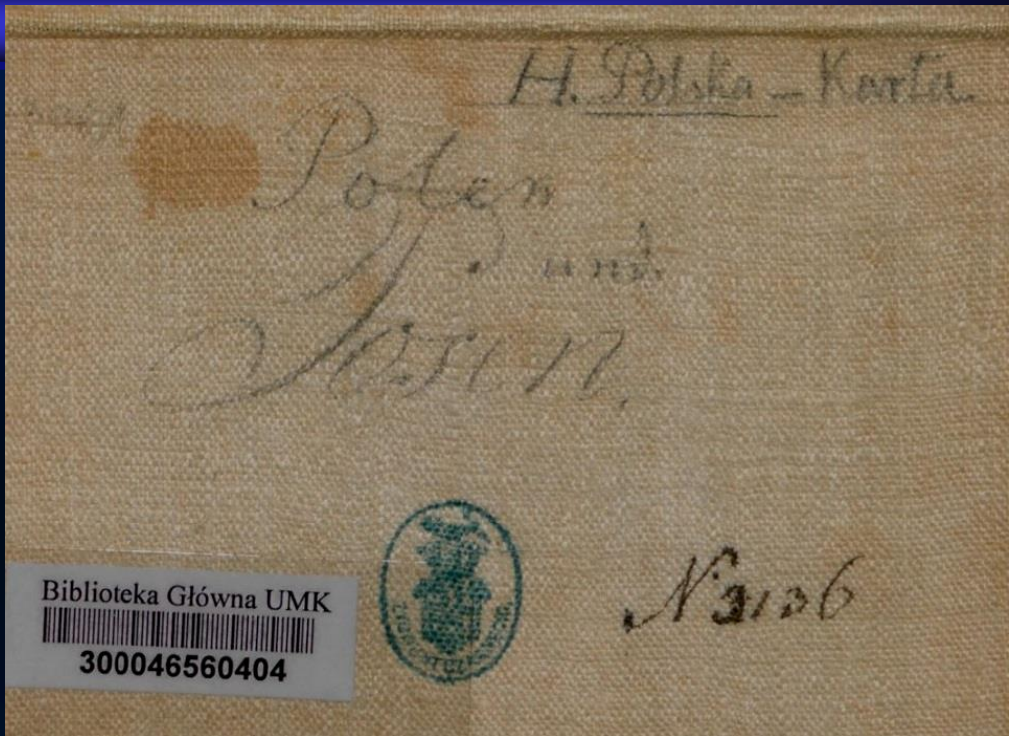 H. Polska - Karta
Polen
und
Posen.
Biblioteka Główna UMK
300046560404